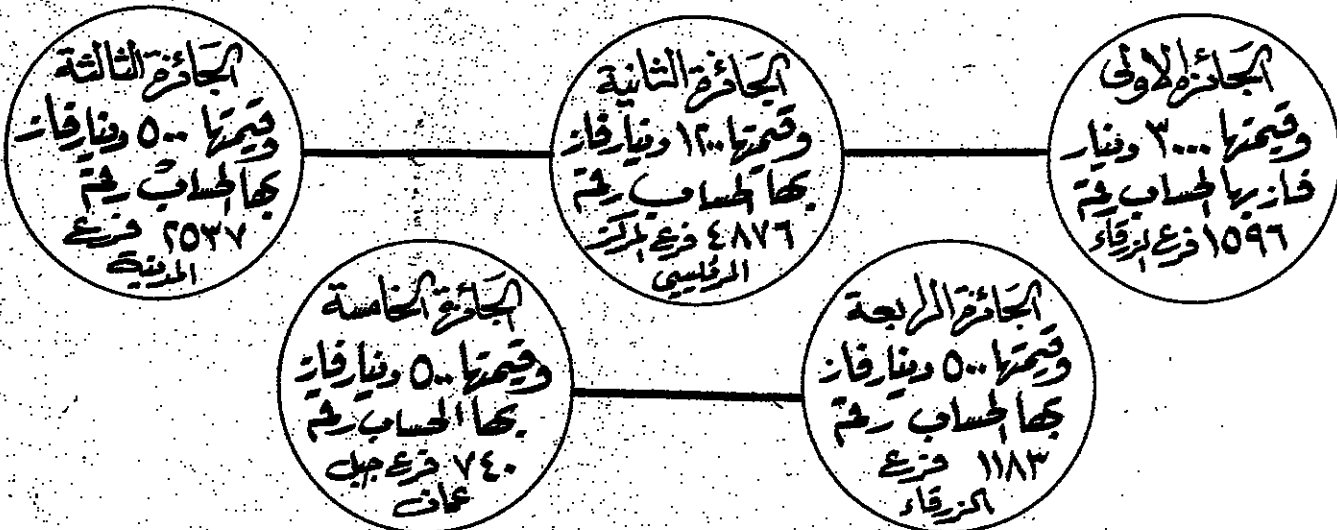 الجائزة الاولى
وقيمتها ٣٠٠٠ دينار
فاز بها الحساب رقم
١٥٩٦ فرع الزرقاء
الجائزة الثانية
وقيمتها ١٢٠٠ دينار فاز
بها الحساب رقم
٤٨٧٦ فرع المركز
الرئيسي
الجائزة الثالثة
وقيمتها ٥٠٠ دينار فاز
بها الحساب رقم
٢٥٣٧ فرع
المدينة
الجائزة الرابعة
وقيمتها ٥٠٠ دينار فاز
بها الحساب رقم
١١٨٣ فرع
الزرقاء
الجائزة الخامسة
وقيمتها ٥٠٠ دينار فاز
بها الحساب رقم
٧٤٠ فرع جبل
عمان